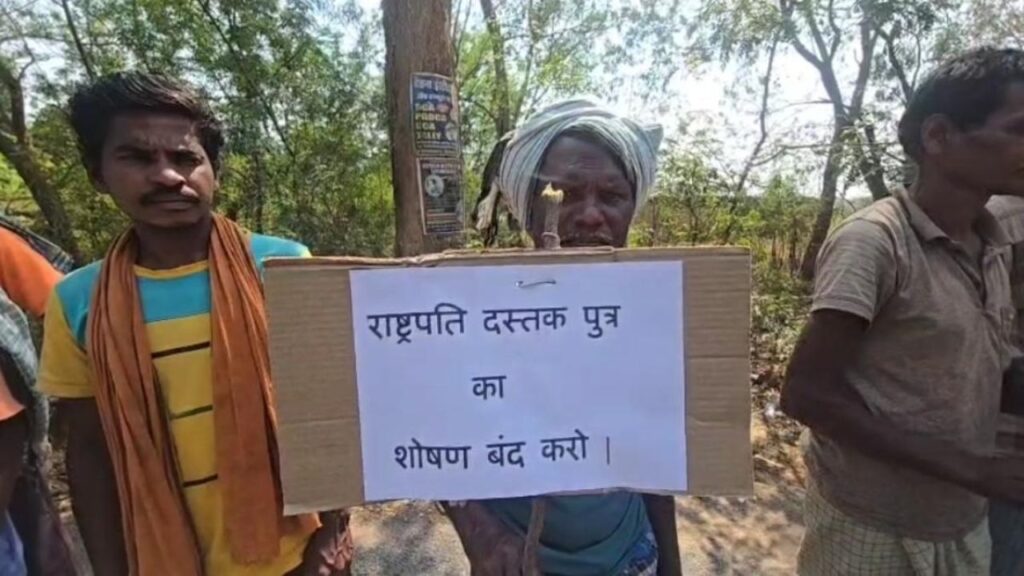 राष्ट्रपति दस्तक पुत्र
का
शोषण बंद करो |